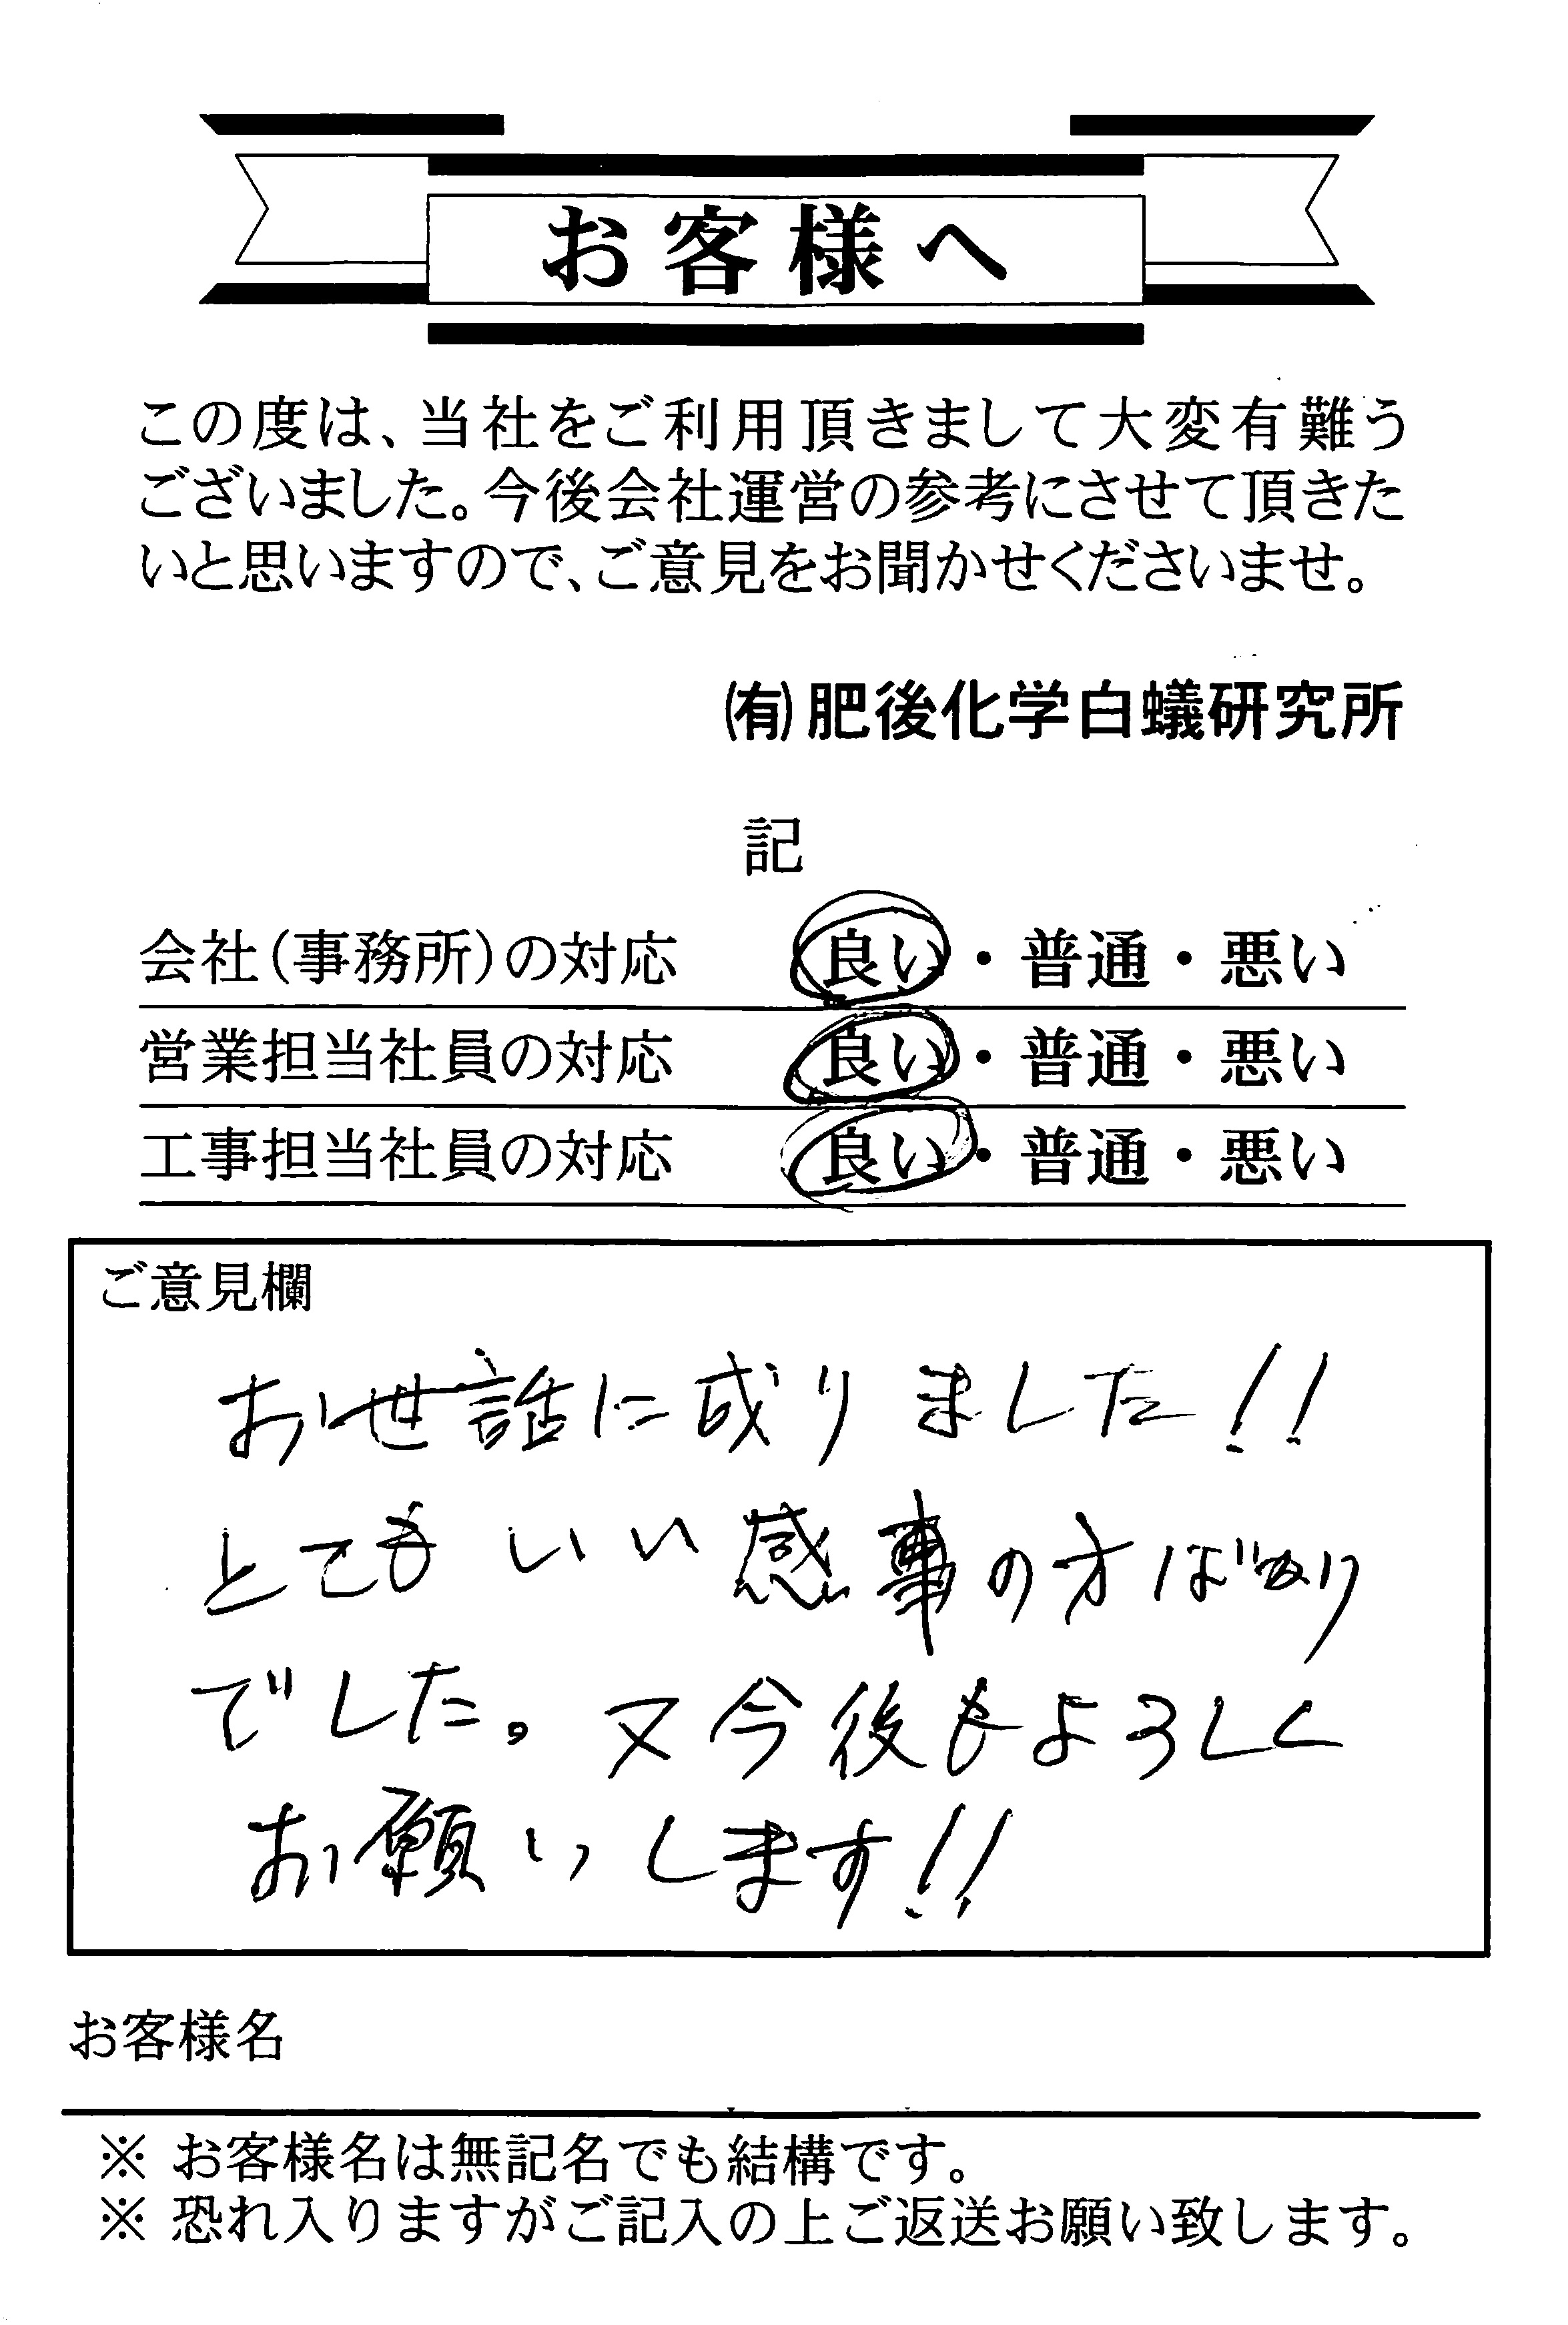 お客様へ
この度は、当社をご利用頂きまして大変有難う
ございました。今後会社運営の参考にさせて頂きた
いと思いますので、ご意見をお聞かせくださいませ。
㈲肥後化学白蟻研究所
記
会社(事務所)の対応 良い・普通・悪い
営業担当社員の対応 良い・普通・悪い
工事担当社員の対応 良い・普通・悪い
ご意見欄
お世話に成りました!!
とてもいい感事の方ばかり
でした。又今後もよろしく
お願いします!!
お客様名
※ お客様名は無記名でも結構です。
※ 恐れ入りますがご記入の上ご返送お願い致します。